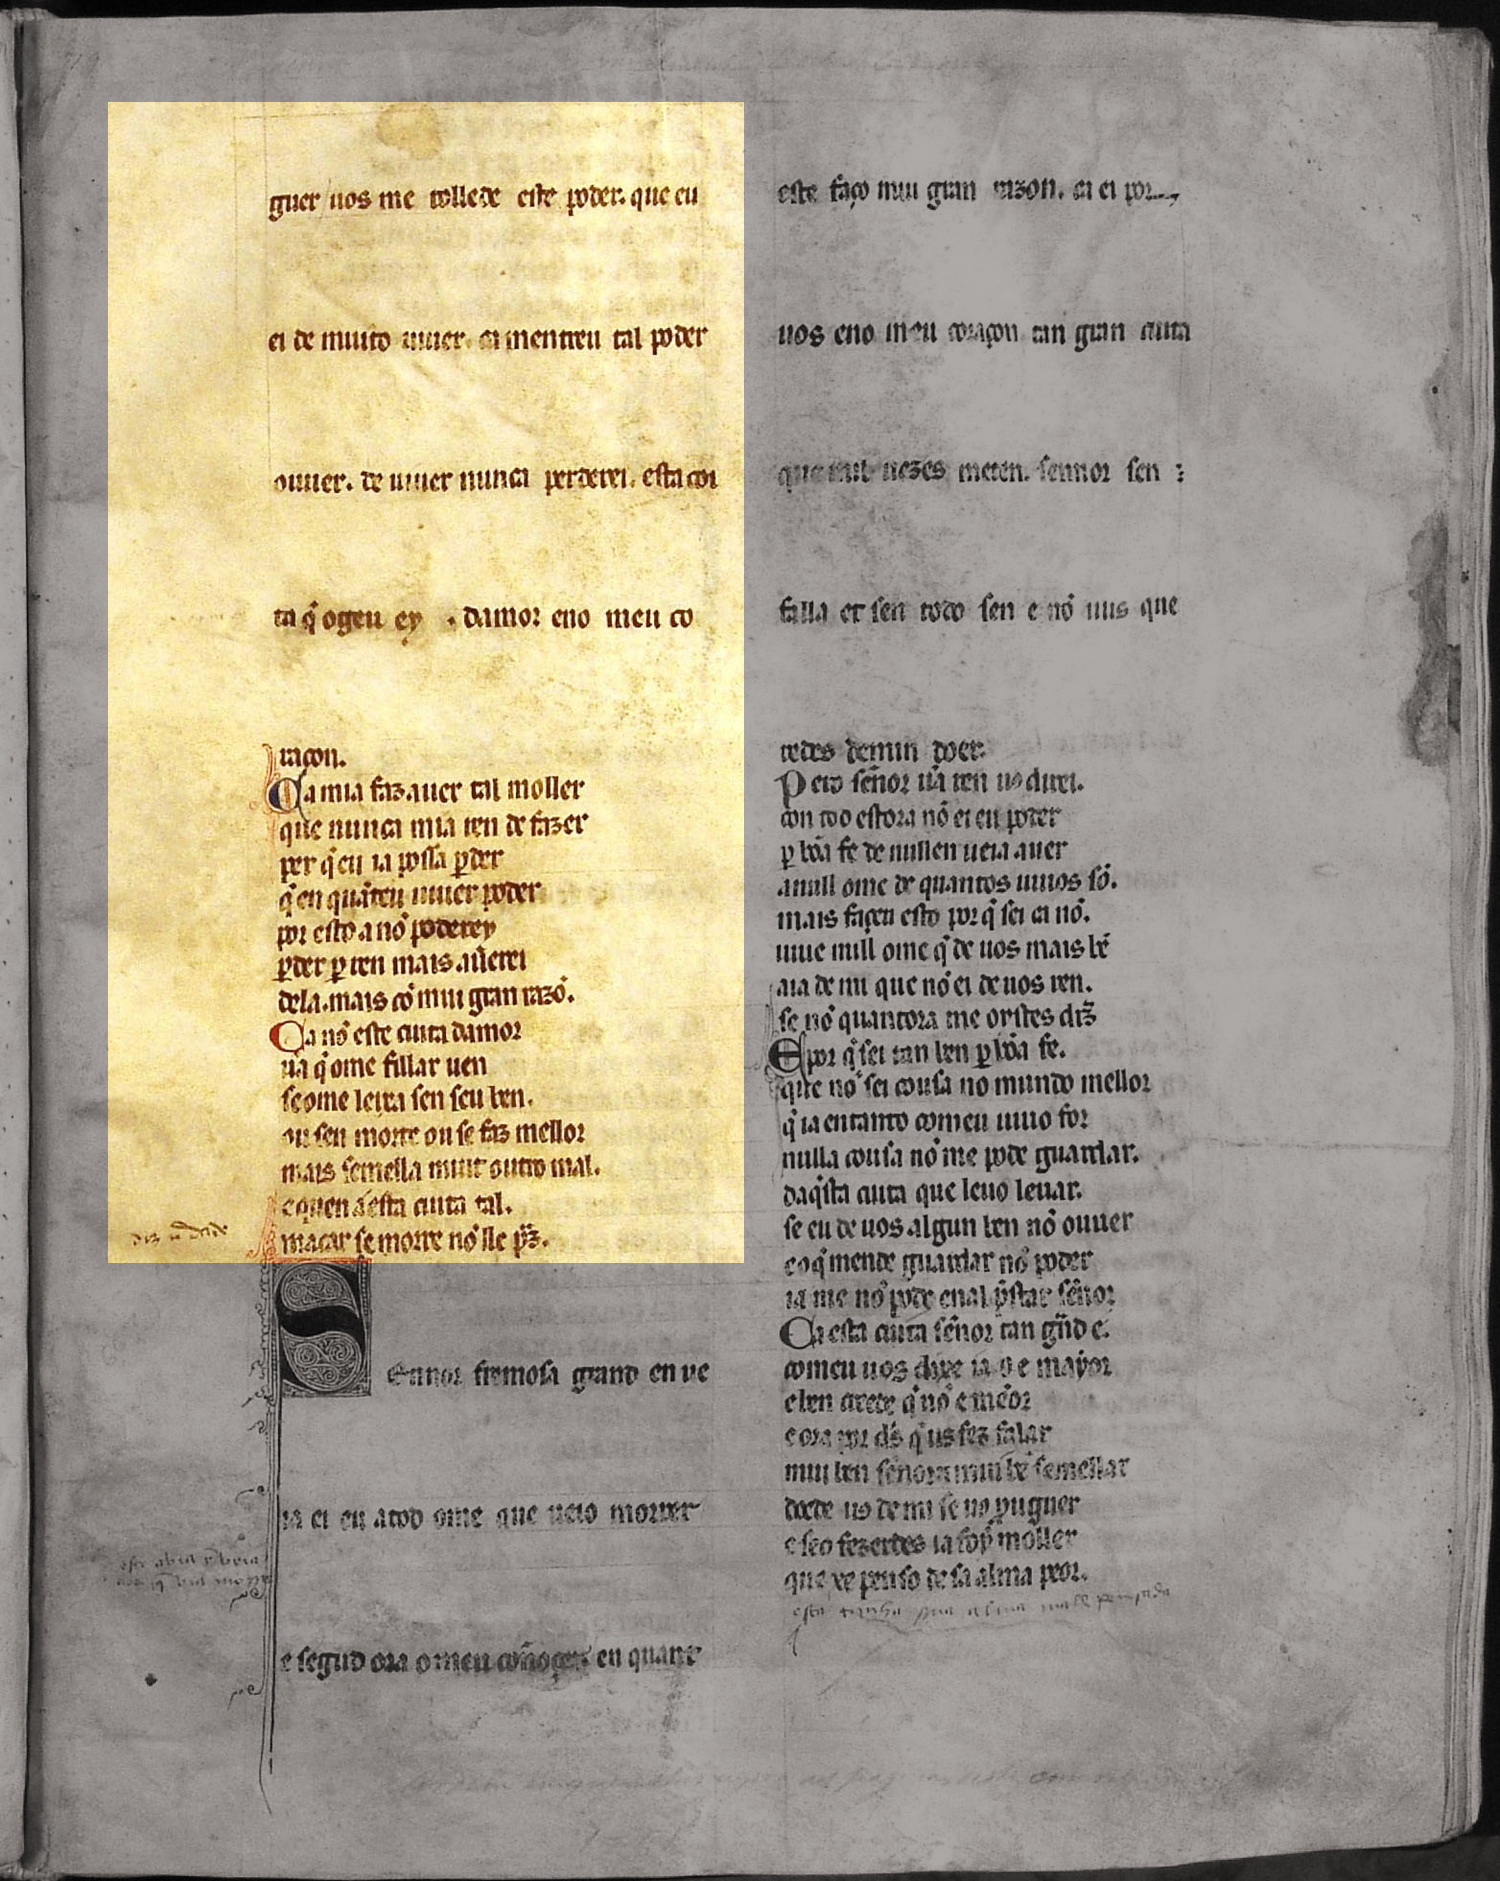 guer uos me tollede este poder. que eu
ei de muito uiuer. ca mentreu tal poder
ouuer. de uiuer nunca perderei. esta coi
ta q̃ ogeu ey . damor eno meu co
raçon.
Ca mia faz auer tal moller
que nunca mia ren de fazer
per q̃ eu ia possa ꝑder
q̃ en quãteu uiuer poder
por esto a nõ poderey
ꝑder ꝑ ren mais auerei
dela. mais cõ mui gran razõ.
Ca nõ este cuita damor
ũa q̃ ome fillar uen
se ome leixa sen seu ben.
ou sen morre ou se faz mellor
mais semella muit outro mal.
e quen a esta cuita tal.
macar se morre nõ lle pʒ.
Sennor fremosa grand en ue
ia ei eu a tod ome que ueio morrer
e segũd ora o meu coñoçer en quant
este faço mui gran razon. ca ei por
uos eno meu coraçon tan gran cuita
que mil uezes meten. sennor sen
falla er sen todo sen e nõ uus que
redes de min doer.
Pero señor ũa ren uos direi.
con tod estora nõ ei eu poder
ꝑ bõa fe de nullen ueia auer
a null ome de quantos uiuos sõ.
mais façeu esto por q̃ sei ca nõ.
uiue null ome q̃ de uos mais bẽ
aia de mi que nõ ei de uos ren.
se nõ quantora me oistes diz̃
E por q̃ sei tan ben ꝑ bõa fe.
que nõ sei cousa no mundo mellor
q̃ ia entanto comeu uiuo for
nulla cousa nõ me pode guardar.
daq̃sta cuita que leuo leuar.
se eu de uos algun ben nõ ouuer
e o q̃ mende guardar nõ poder
ia me nõ pode en al p̃star señor
Ca esta cuita señor tan grãd e.
comeu uos dixe ia e mayor
e ben creede q̃ nõ e meor
e ora por ds̃ q̃ us fez falar
mui ben señor e mui bẽ semellar
doede us de mi se uo puguer
e se o fezerdes ia soy moller
que xe penso de sa alma peor.
esta tinha sua alma mall pensada